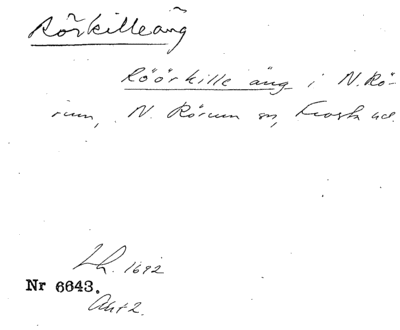 Rörkilleäng
Röörkille äng i N. Rö-
rum, N. Rörum sn, Frosta hd.
Lh. 1692
Nr 6643.
Akt 2.